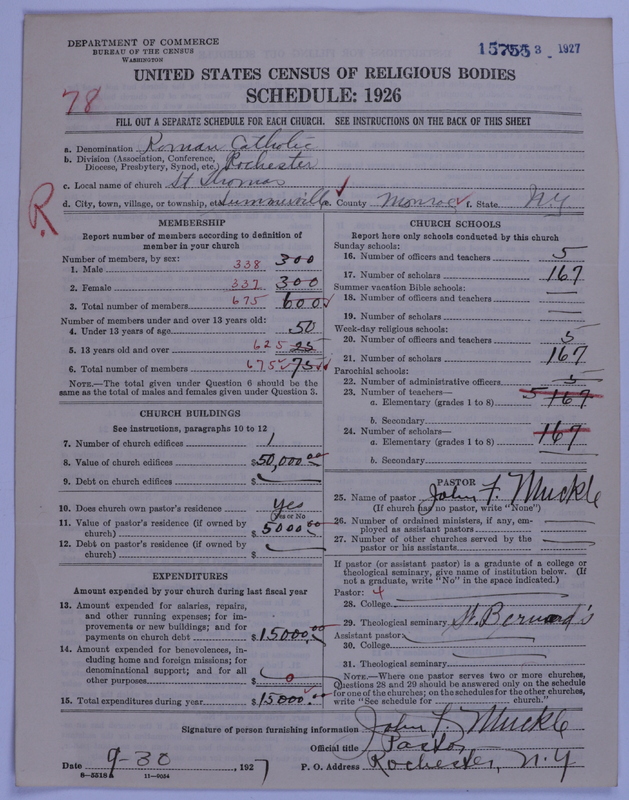 DEPARTMENT OF COMMERCE
BUREAU OF THE CENSUS
WASHINGTON
15755 3 - 1927
UNITED STATES CENSUS OF RELIGIOUS BODIES
SCHEDULE: 1926
78
FILL OUT A SEPARATE SCHEDULE FOR EACH CHURCH. SEE INSTRUCTIONS ON THE BACK OF THIS SHEET
a. Denomination Roman Catholic
b. Division (Association, Conference, Diocese, Presbytery, Synod, etc.) Rochester
c. Local name of church St Thomas
d. City, town, village, or township, or Summerville e. County Monroe f. State N.Y
R
MEMBERSHIP
Report number of members according to definition of member in your church
Number of members, by sex:
1. Male 338 300
2. Female 337 300
3. Total number of members 675 600
Number of members under and over 13 years old:
4. Under 13 years of age 50
5. 13 years old and over 625 25
6. Total number of members 675 75
NOTE.—The total given under Question 6 should be the same as the total of males and females given under Question 3.
CHURCH BUILDINGS
See instructions, paragraphs 10 to 12
7. Number of church edifices 1
8. Value of church edifices $50,000.00
9. Debt on church edifices $
10. Does church own pastor's residence? yes
(Yes or No)
11. Value of pastor's residence (if owned by church) $5000.00
12. Debt on pastor's residence (if owned by church) $
EXPENDITURES
Amount expended by your church during last fiscal year
13. Amount expended for salaries, repairs, and other running expenses; for improvements or new buildings; and for payments on church debt $15000.00
14. Amount expended for benevolences, including home and foreign missions; for denominational support; and for all other purposes $ 0
15. Total expenditures during year $15000.00
CHURCH SCHOOLS
Report here only schools conducted by this church
Sunday schools:
16. Number of officers and teachers 5
17. Number of scholars 167
Summer vacation Bible schools:
18. Number of officers and teachers
19. Number of scholars
Week-day religious schools:
20. Number of officers and teachers 5
21. Number of scholars 167
Parochial schools:
22. Number of administrative officers 5
23. Number of teachers—
a. Elementary (grades 1 to 8) 5 167
b. Secondary
24. Number of scholars—
a. Elementary (grades 1 to 8) 167
b. Secondary
PASTOR
25. Name of pastor John F. Muckle
(If church has no pastor, write "None")
26. Number of ordained ministers, if any, employed as assistant pastors
27. Number of other churches served by the pastor or his assistants
If pastor (or assistant pastor) is a graduate of a college or theological seminary, give name of institution below. (If not a graduate, write "No" in the space indicated.)
Pastor: 4
28. College
29. Theological seminary St. Bernard's
Assistant pastor:
30. College
31. Theological seminary
NOTE.—Where one pastor serves two or more churches, Questions 28 and 29 should be answered only on the schedule for one of the churches; on the schedules for the other churches, write "See schedule for church."
Signature of person furnishing information John F. Muckle
Official title Pastor
Date 9-30, 1927 P. O. Address Rochester, N.Y
8—5518a 11—9054